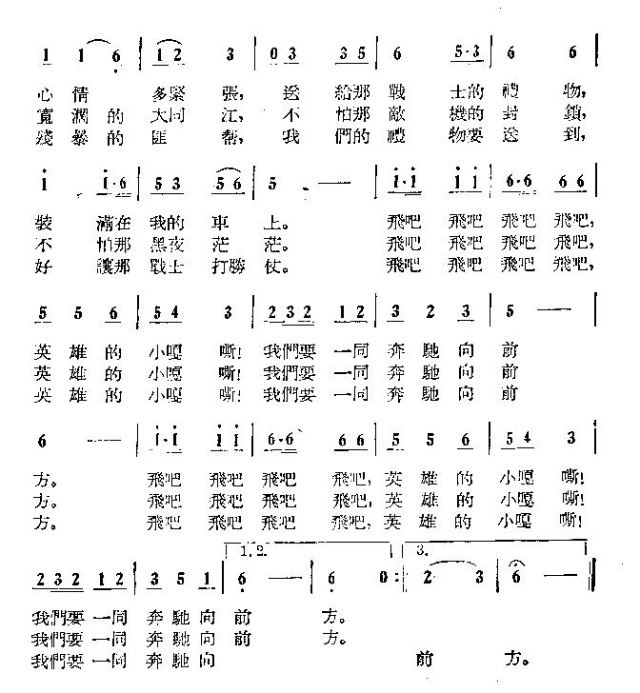 1 1 6 | 1 2 3 | 0 3 3 5 | 6 5·3 | 6 6 |
心情 多緊張, 送給那戰士的禮物,
寬濶的大同江, 不怕那敵機的封鎖,
殘暴的匪幫, 我們的禮物要送到,
i i·6 | 5 3 5 6 | 5 — | i·i i i | 6·6 6 6 |
裝滿在我的車上。 飛吧飛吧飛吧飛吧,
不怕那黑夜茫茫。 飛吧飛吧飛吧飛吧,
好讓那戰士打勝仗。 飛吧飛吧飛吧飛吧,
5 5 6 | 5 4 3 | 2 3 2 1 2 | 3 2 3 | 5 — |
英雄的小嘎嘶! 我們要一同奔馳向前
英雄的小嘎嘶! 我們要一同奔馳向前
英雄的小嘎嘶! 我們要一同奔馳向前
6 — | i·i i i | 6·6 6 6 | 5 5 6 | 5 4 3 |
方。 飛吧飛吧飛吧飛吧, 英雄的小嘎嘶!
方。 飛吧飛吧飛吧飛吧, 英雄的小嘎嘶!
方。 飛吧飛吧飛吧飛吧, 英雄的小嘎嘶!
1.2. 3.
2 3 2 1 2 | 3 5 1 | 6 — | 6 0 :| 2 3 | 6 — ‖
我們要一同奔馳向前方。
我們要一同奔馳向前方。
我們要一同奔馳向 前方。